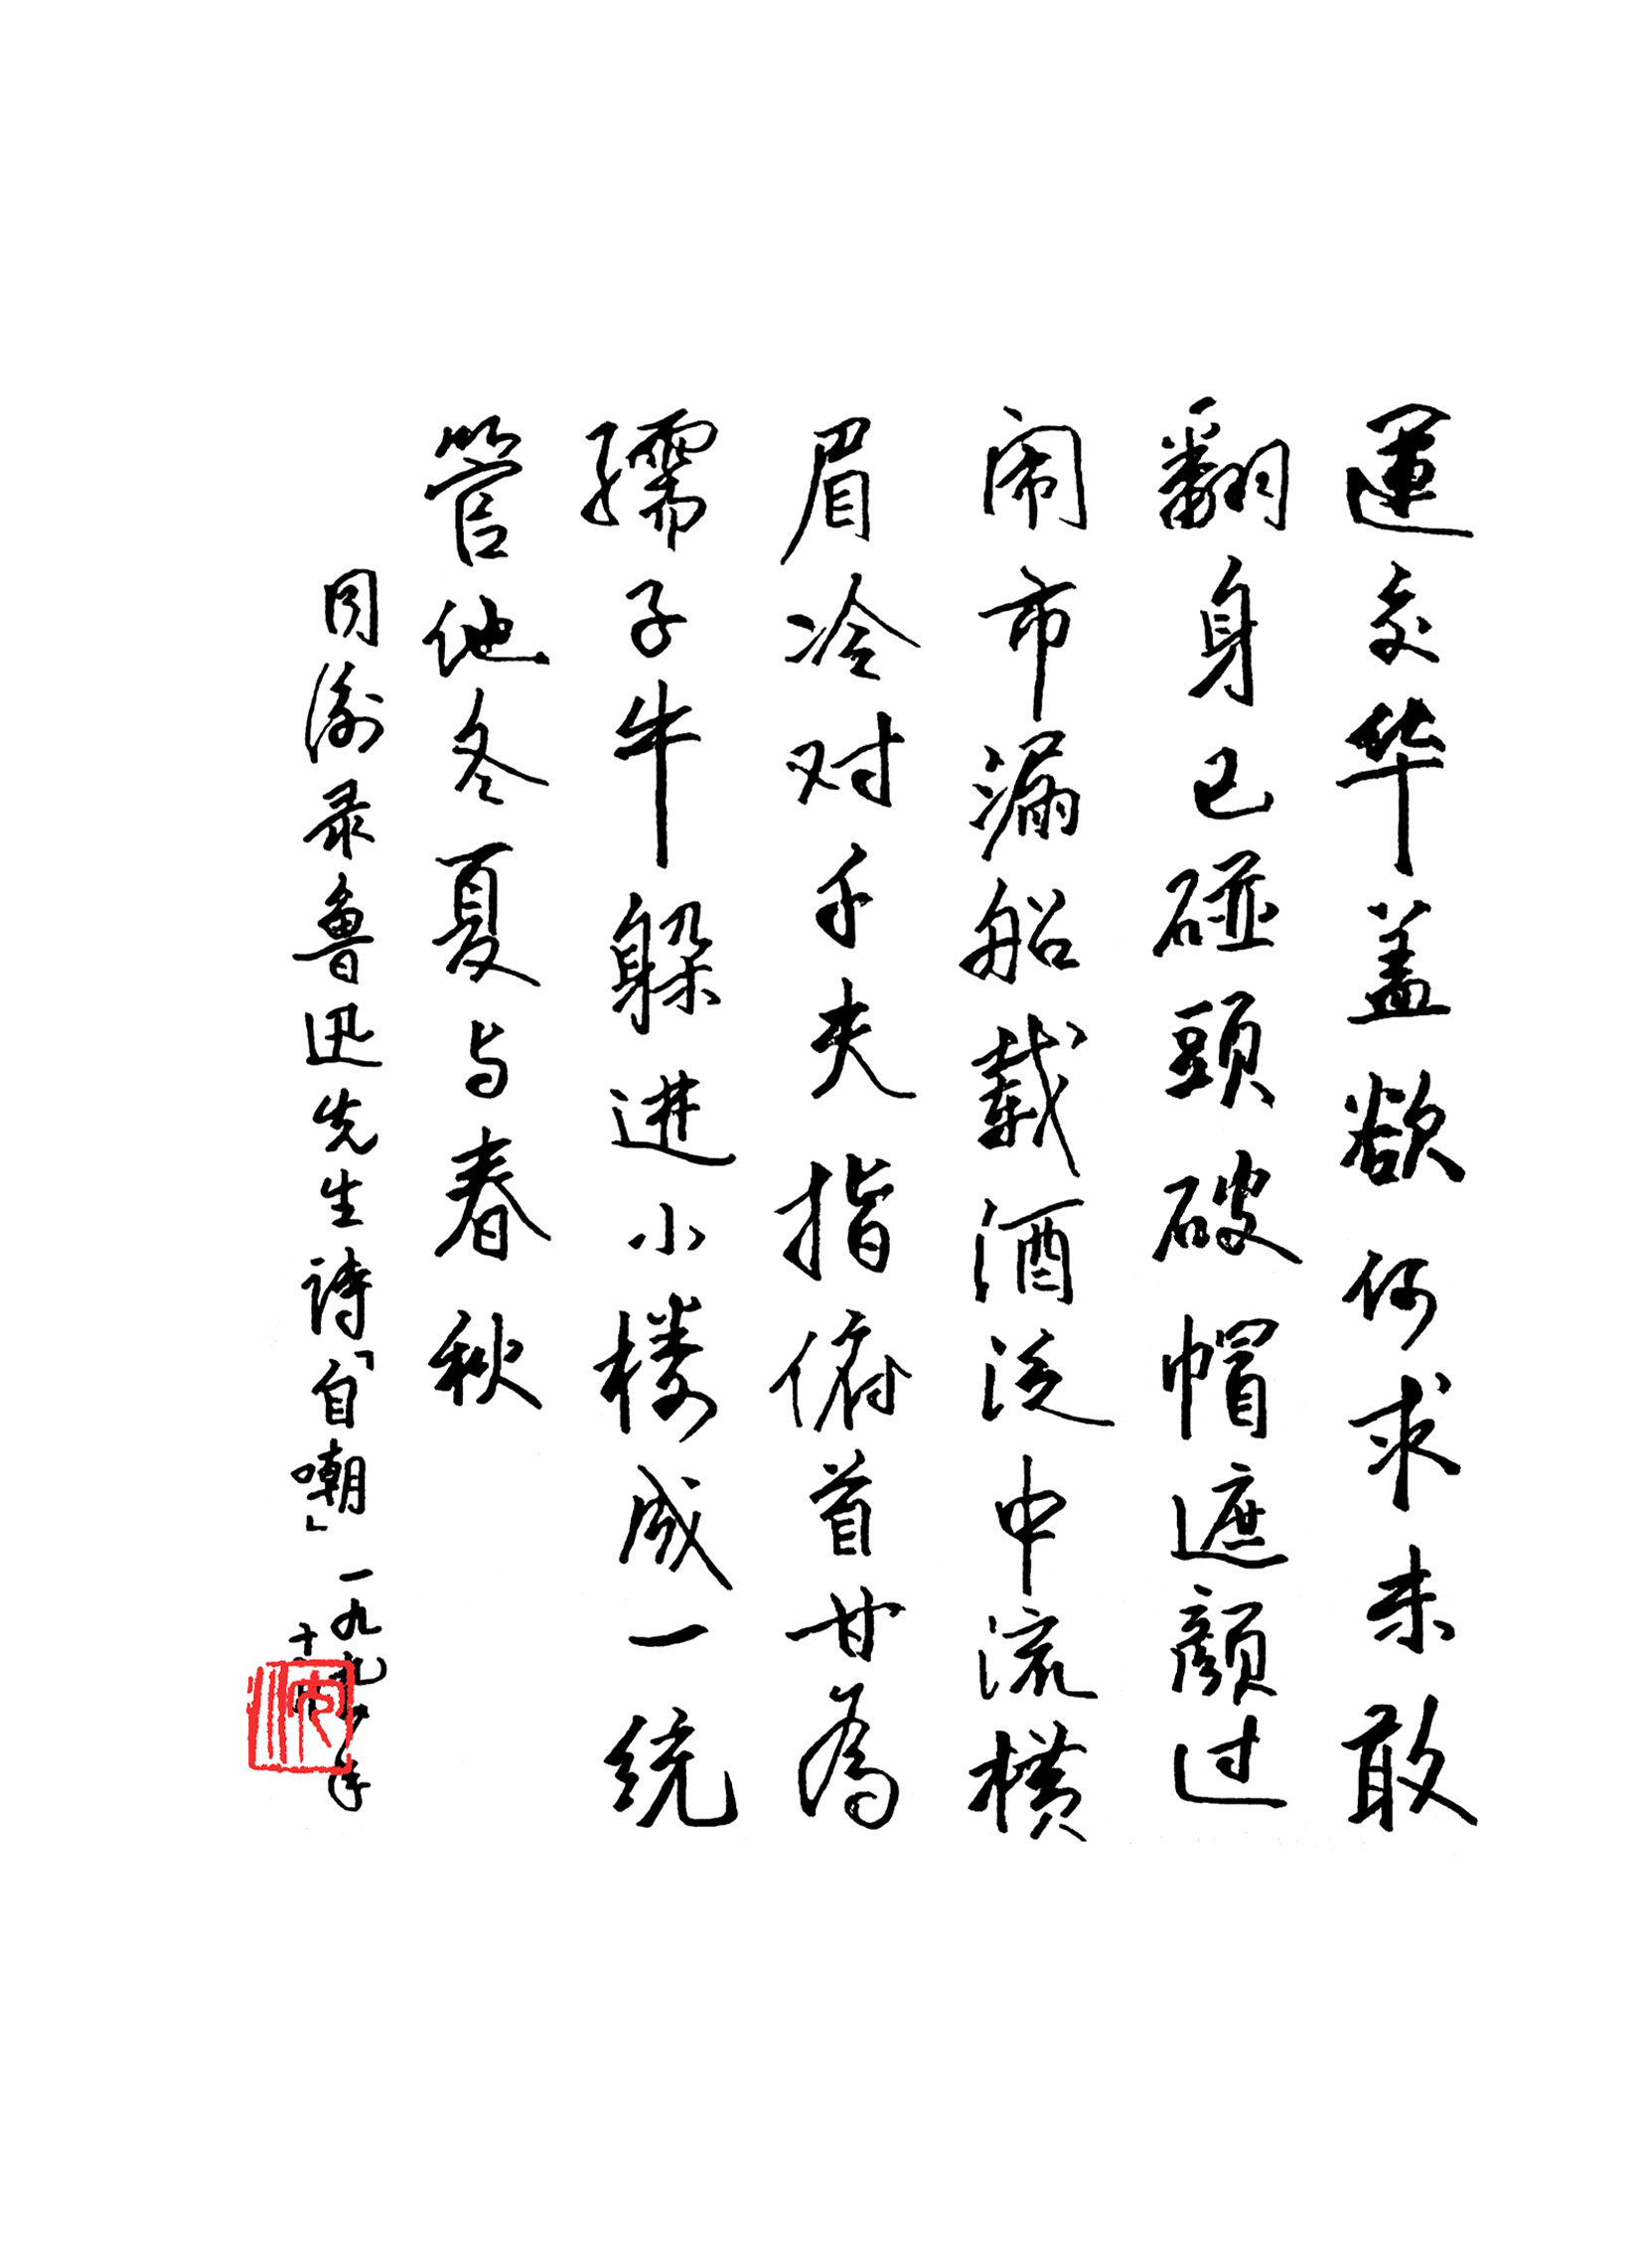 運交华盖欲何求未敢
翻身已碰頭破帽遮顏过
闹市漏船载酒泛中流横
眉冷对千夫指俯首甘為
孺子牛躲进小楼成一统
管他冬夏与春秋
录鲁迅先生诗「自嘲」一九九年
十